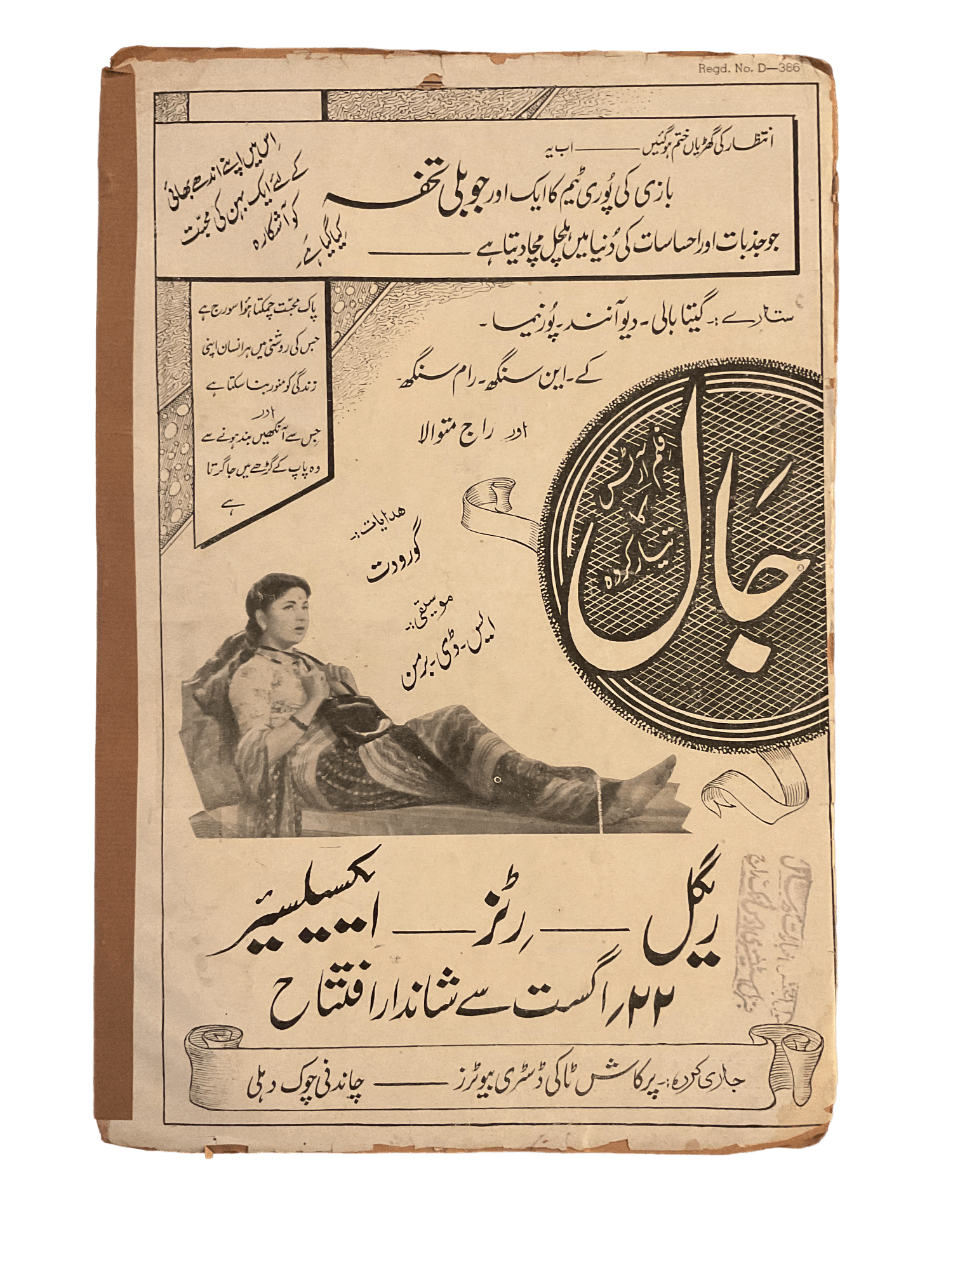 Regd. No. D—386
انتظار کی گھڑیاں ختم ہوگئیں ——— اب یہ
بازی کی پُوری ٹیم کا ایک اور جوبلی تحفہ
جو جذبات اور احساسات کی دُنیا میں ہلچل مچا دیتا ہے
اِس میں اپنے اندھے بھائی
کے لئے ایک بہن کی محبت
کو آشکارہ
کیا گیا ہے
پاک محبّت چمکتا ہوٗا سورج ہے
جس کی روشنی میں ہر انسان اپنی
زندگی کو منور بنا سکتا ہے
اور
جس سے آنکھیں بند ہونے سے
وہ پاپ کے گڑھے میں جا گرتا
ہے
ستارے :۔ گیتا بالی ۔ دیو آنند ۔ پُورنیما ۔
کے ۔ این سنگھ ۔ رام سنگھ
اور راج متوالا
جَال
فلم آرٹس
کا
تیار کردہ
ھدایات :۔
گورودت
موسیقی :۔
ایس ۔ ڈی ۔ برمن
ریگل —— رِٹز —— ایکسیلسیئر
۲۲ ؍ اگست سے شاندار افتتاح
جاری کردہ :۔ پرکاش ٹاکی ڈسٹری بیوٹرز —— چاندنی چوک دہلی